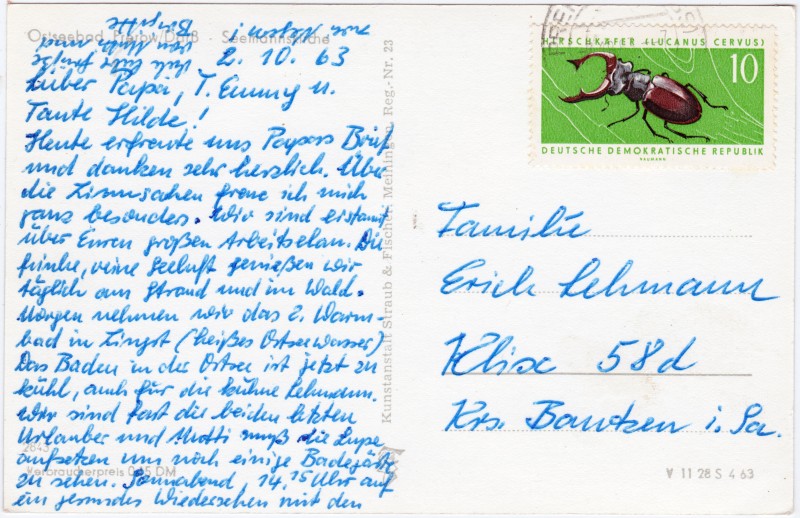 Ostseebad Prerow/Darß - Seemannskirche
2. 10. 63
Lieber Papa, T. Emmy u.
Tante Hilde!
Heute erfreute uns Papas Brief
und danken sehr herzlich. Über
die Zinnsachen freue ich mich
ganz besonders. Wir sind erstaunt
über Euren großen Arbeitselan. Die
frische, reine Seeluft genießen wir
täglich am Strand und im Wald.
Morgen nehmen wir das 2. Warm-
bad in Zingst (heißes Ostseewasser)
Das Baden in der Ostsee ist jetzt zu
kühl, auch für die kühne Lehmann.
Wir sind fast die beiden letzten
Urlauber und Mutti muß die Lupe
aufsetzen um noch einige Badegäste
zu sehen. Sonnabend, 14,15 Uhr auf
ein gesundes Wiedersehen mit den
2645
Verbraucherpreis 0,15 DM
Kunstanstalt Straub & Fischer, Meiningen Reg.-Nr. 23
HIRSCHKÄFER (LUCANUS CERVUS)
10
DEUTSCHE DEMOKRATISCHE REPUBLIK
NAUMANN
Familie
Erich Lehmann
Klix 58d
Krs. Bautzen i. Sa.
V 11 28 S 4 63